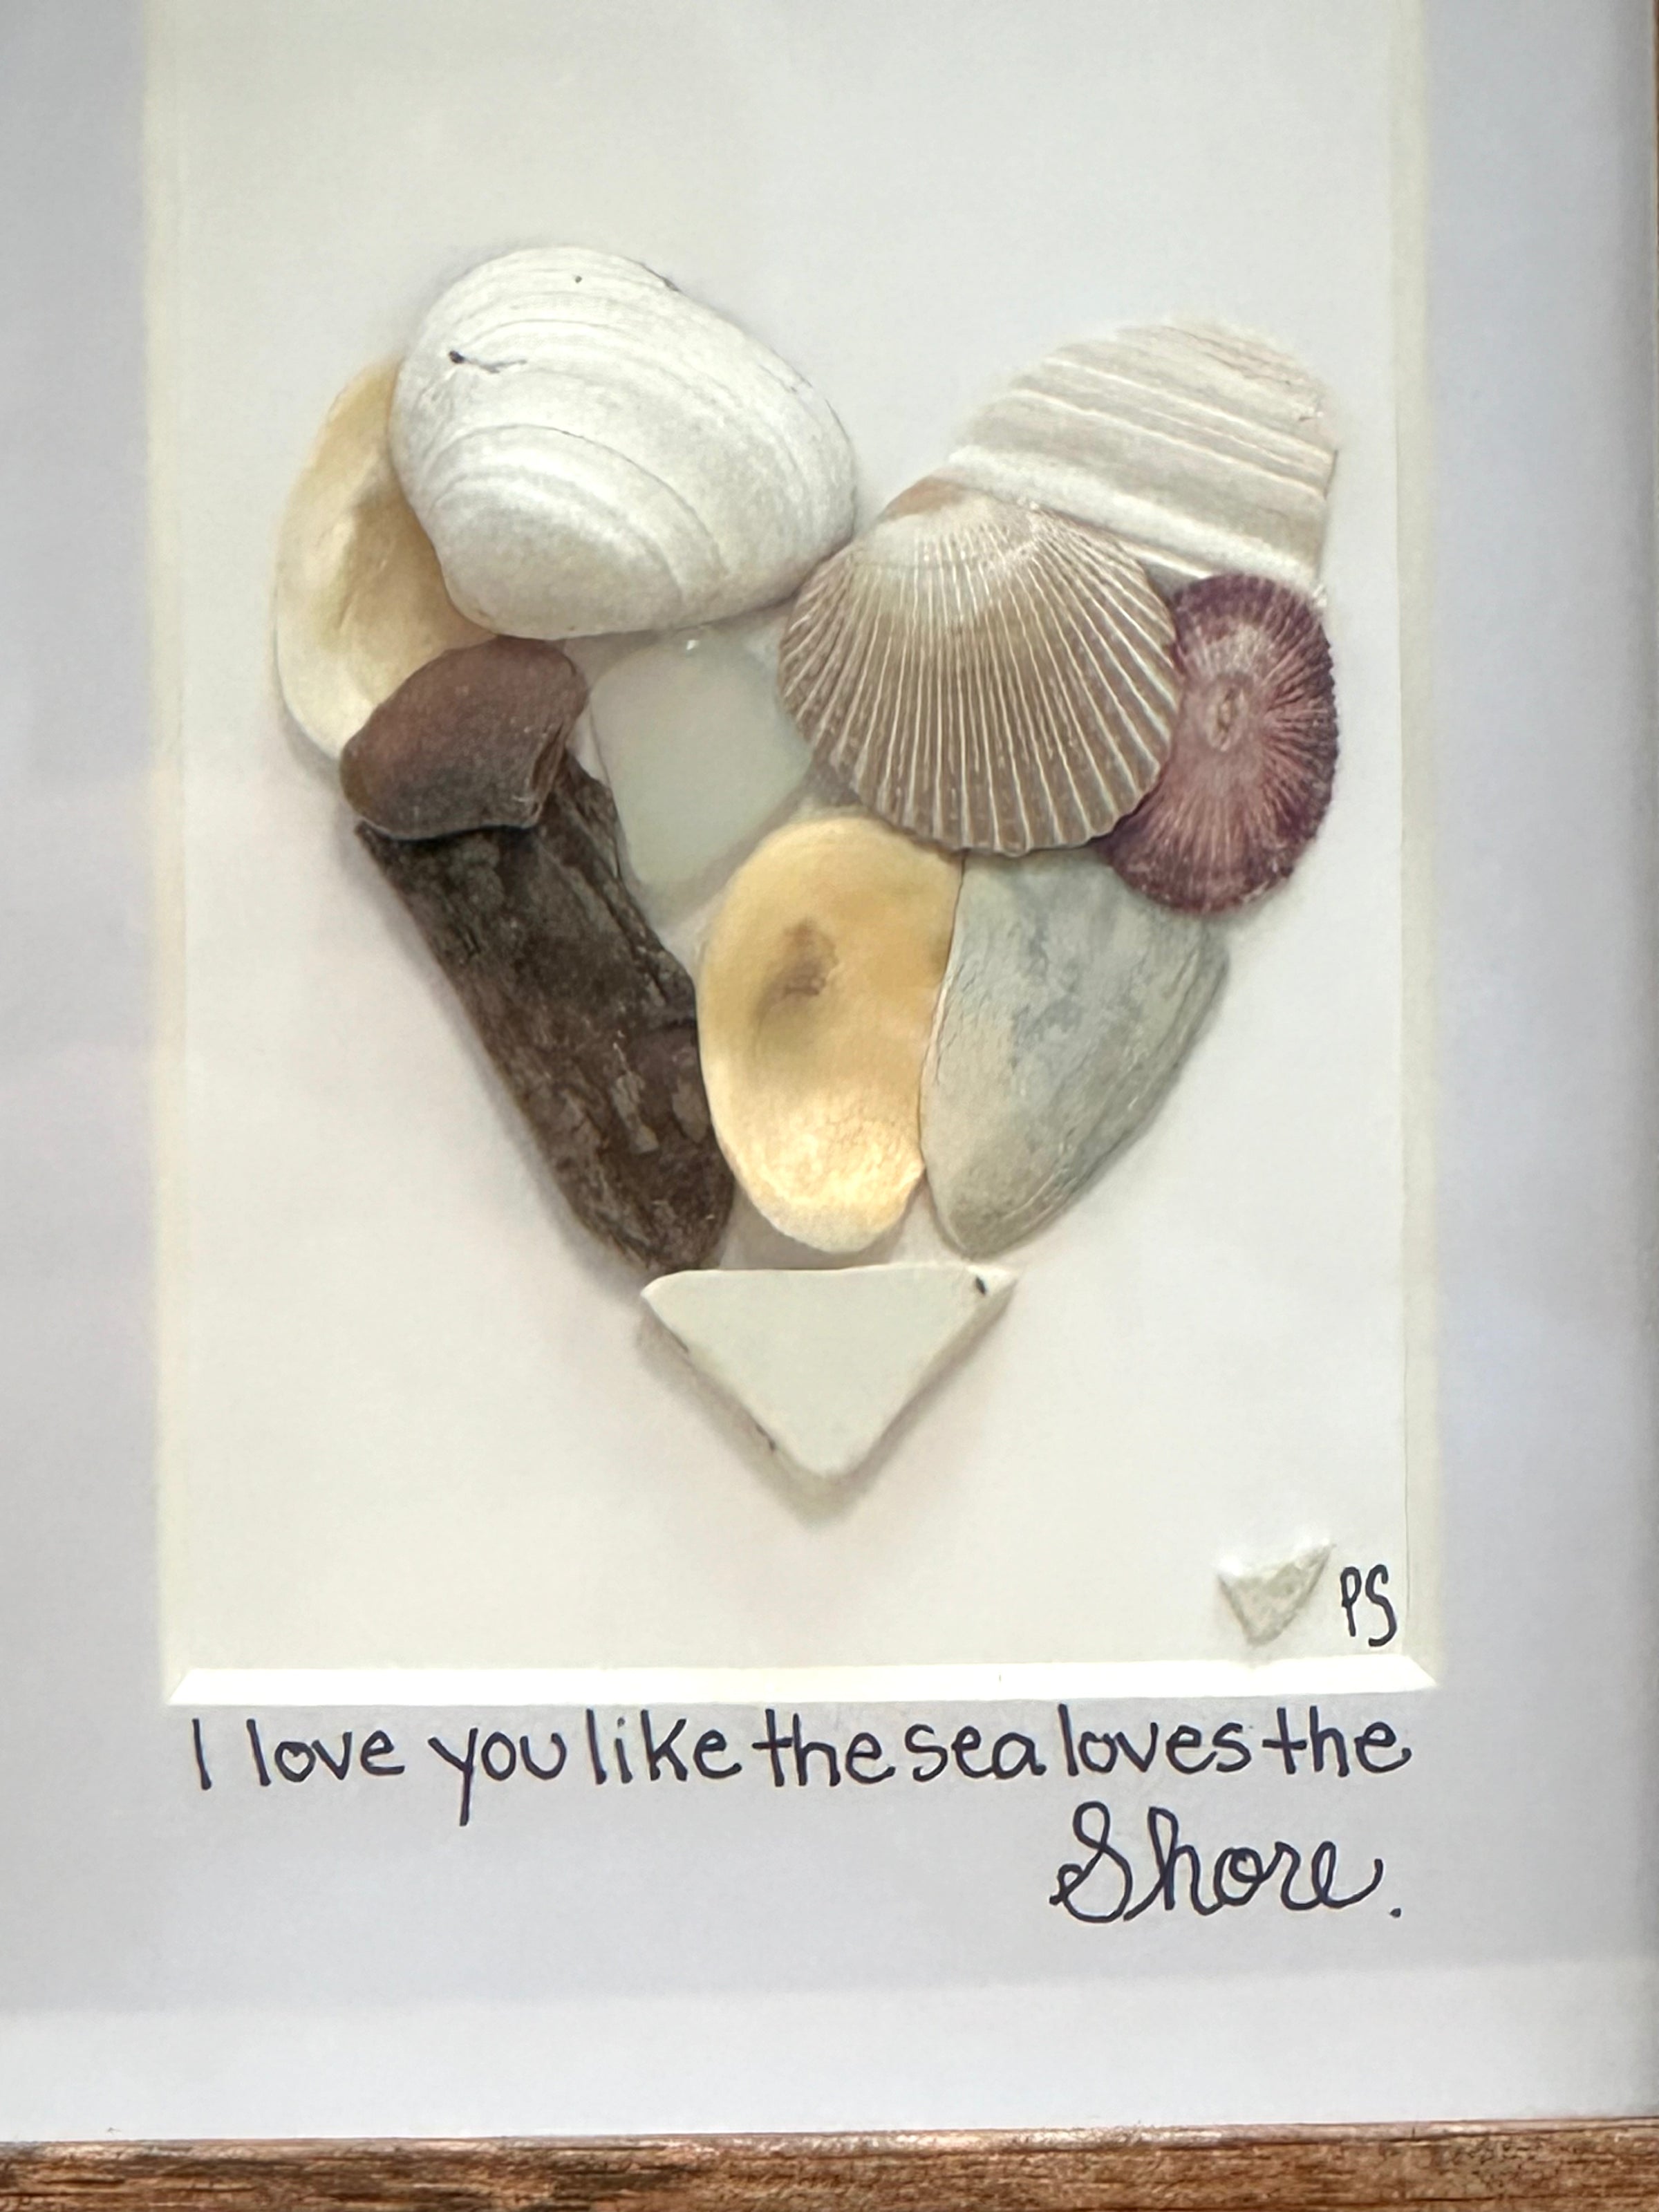 PS
I love you like the sea loves the
Shore.